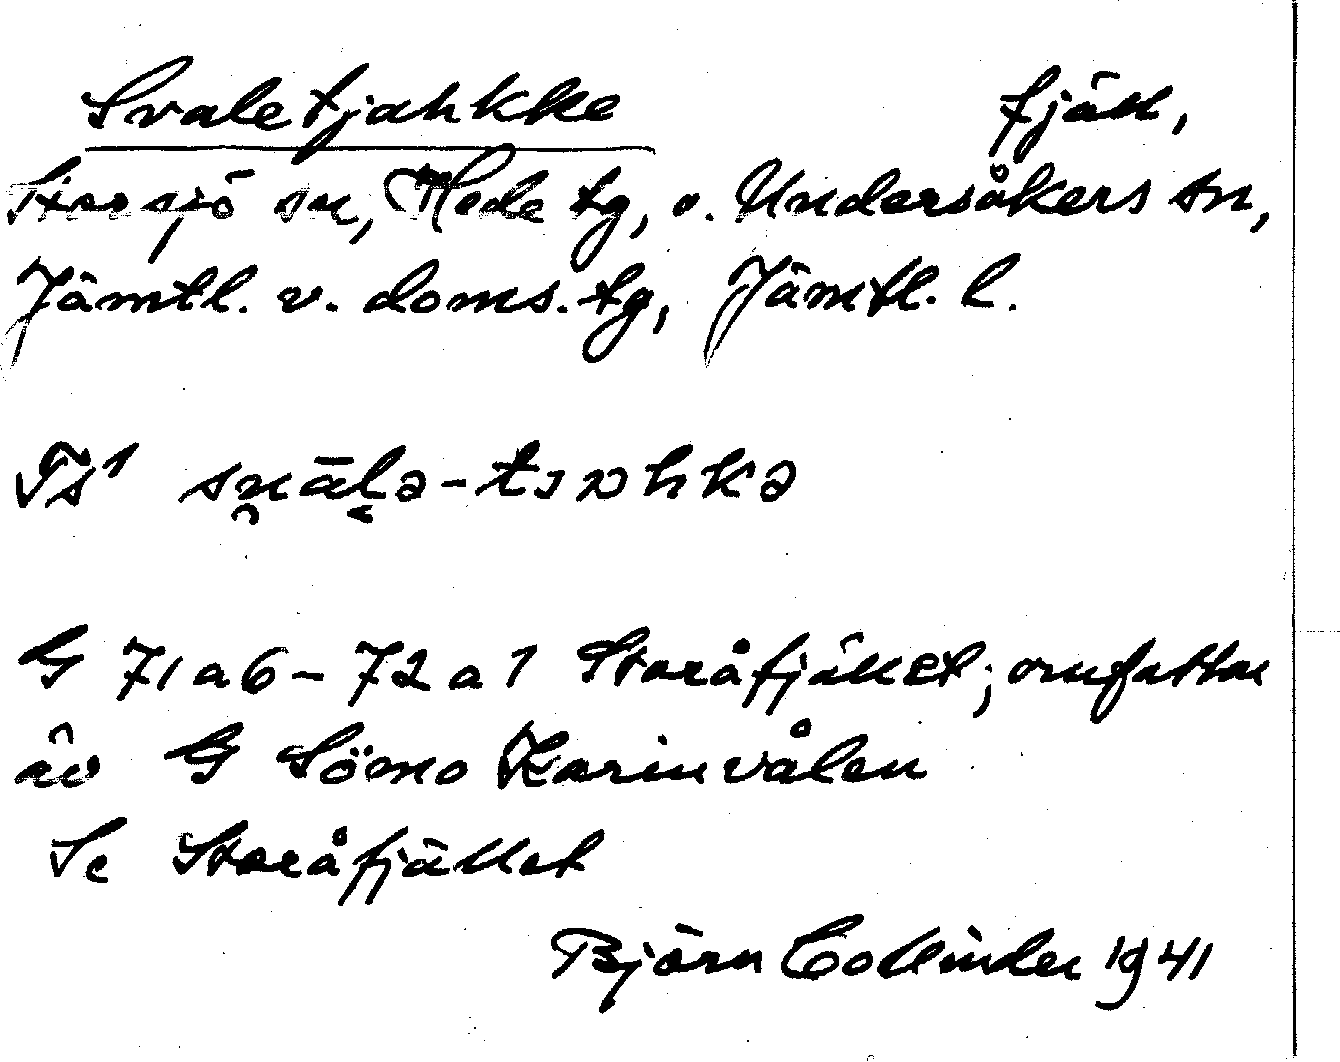 Svaletjahkke fjäll,
Storsjö sn, Hede tg, o. Undersåkers sn,
Jämtl. v. doms. tg, Jämtl. l.
G 71 a 6 - 72 a 1 Storåfjället; omfattar
äv G Sömo Karinvålen
Se Storåfjället
Björn Collinder 1941